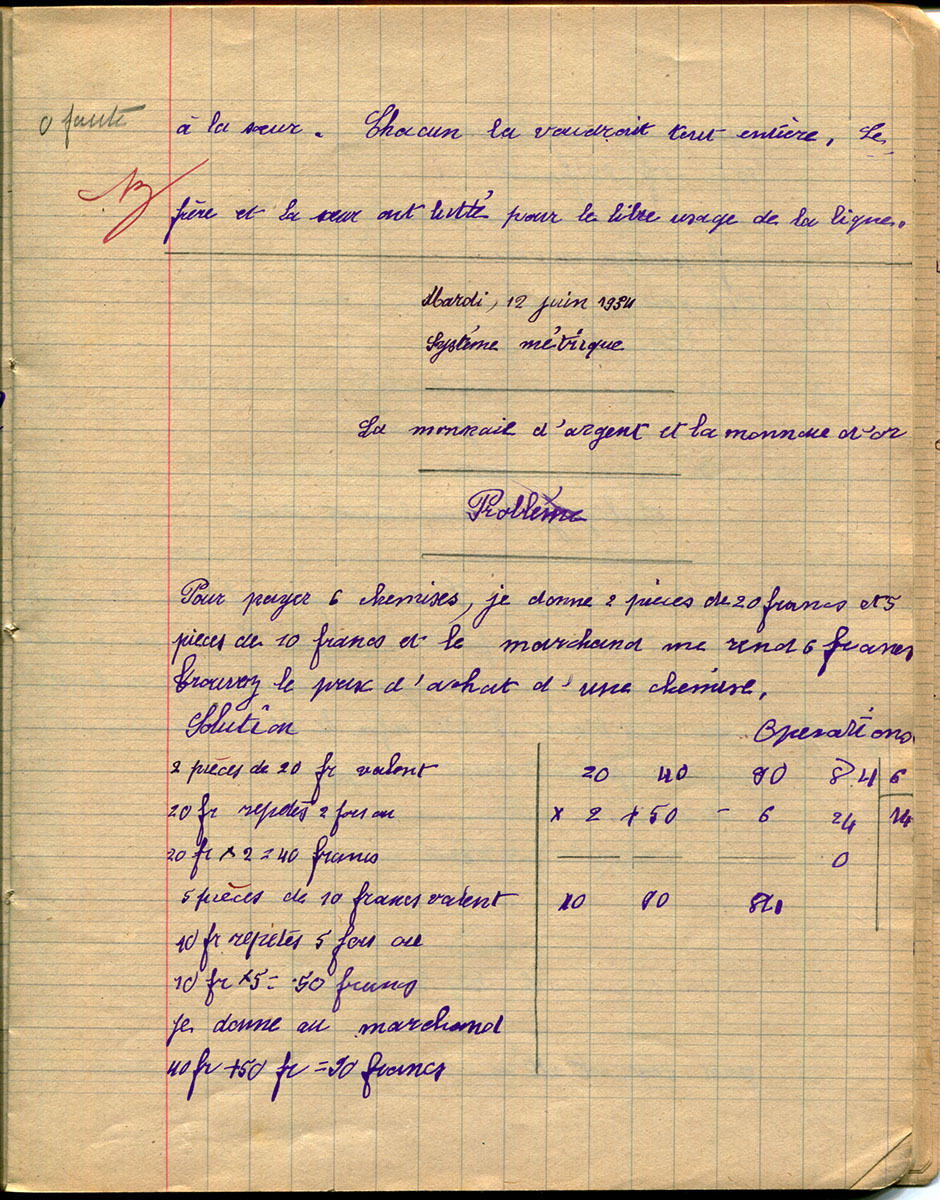 0 faute
à la sœur. Chacun la voudrait tout entière. Le
frère et la sœur ont lutté pour le libre usage de la ligne.
Mardi, 12 juin 1934
Système métrique
La monnaie d'argent et la monnaie d'or
Problème
Pour payer 6 chemises, je donne 2 pièces de 20 francs et 5
pièces de 10 francs et le marchand me rend 6 francs
Trouvez le prix d'achat d'une chemise.
Solution Opérations
2 pièces de 20 fr valent 20 40 90 84 6
20 fr répétés 2 fois ou × 2 + 50 - 6 24 14
20 fr × 2 = 40 francs 0
5 pièces de 10 francs valent 40 90 84
10 fr répétés 5 fois ou
10 fr × 5 = 50 francs
Je donne au marchand
40 fr + 50 fr = 90 francs